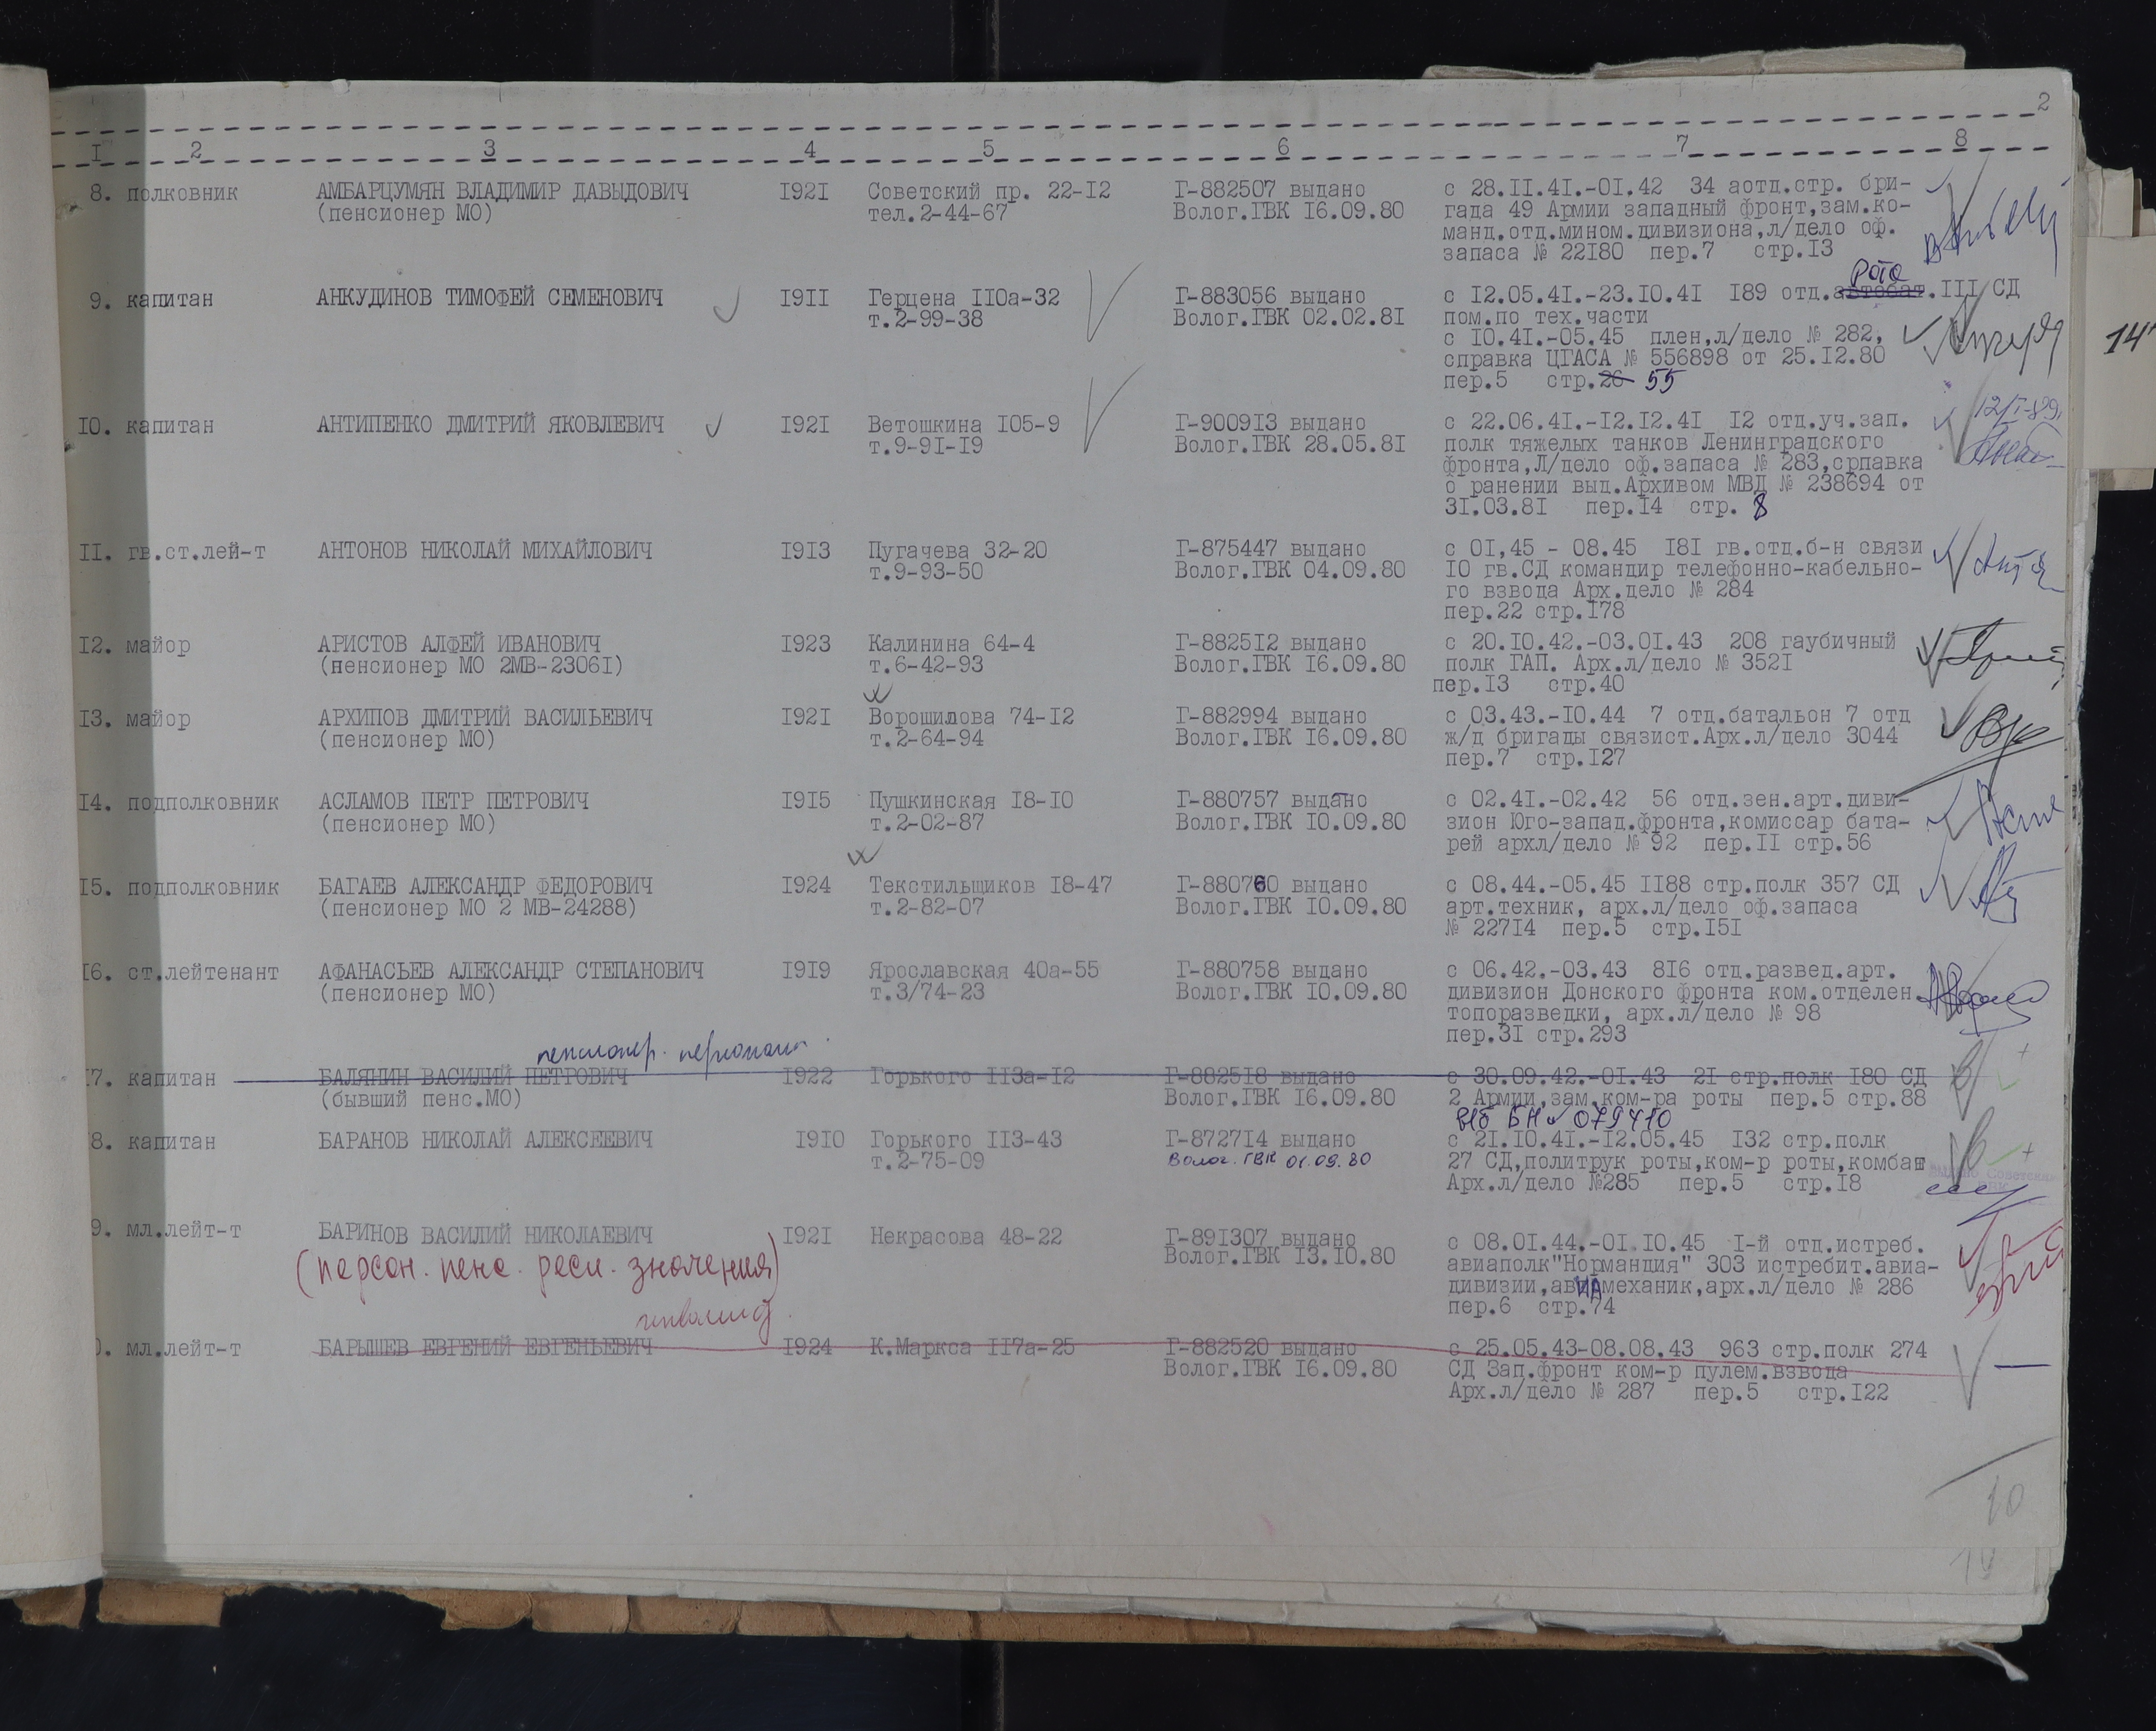 2
I 2 3 4 5 6 7 8
8. полковник АМБАРЦУМЯН ВЛАДИМИР ДАВЫДОВИЧ I92I Советский пр. 22-I2 Г-882507 выдано с 28.II.4I.-0I.42 34 аотд.стр. бри-
(пенсионер МО) тел.2-44-67 Волог.ГВК I6.09.80 гада 49 Армии западный фронт,зам.ко-
манд.отд.мином.дивизиона,л/дело оф.
запаса № 22I80 пер.7 стр.I3
рота
9. капитан АНКУДИНОВ ТИМОФЕЙ СЕМЕНОВИЧ I9II Герцена II0а-32 Г-883056 выдано с I2.05.4I.-23.I0.4I I89 отд.автобат.III СД
т.2-99-38 Волог.ГВК 02.02.8I пом.по тех.части
с I0.4I.-05.45 плен,л/дело № 282,
справка ЦГАСА № 556898 от 25.I2.80
пер.5 стр.26 55
14
I0. капитан АНТИПЕНКО ДМИТРИЙ ЯКОВЛЕВИЧ I92I Ветошкина I05-9 Г-9009I3 выдано с 22.06.4I.-I2.I2.4I I2 отд.уч.зап. 12/I-89
т.9-9I-I9 Волог.ГВК 28.05.8I полк тяжелых танков Ленинградского
фронта,Л/дело оф.запаса № 283,српавка
о ранении выд.Архивом МВД № 238694 от
3I.03.8I пер.I4 стр. 8
II. гв.ст.лей-т АНТОНОВ НИКОЛАЙ МИХАЙЛОВИЧ I9I3 Пугачева 32-20 Г-875447 выдано с 0I,45 - 08.45 I8I гв.отд.б-н связи
т.9-93-50 Волог.ГВК 04.09.80 I0 гв.СД командир телефонно-кабельно-
го взвода Арх.дело № 284
пер.22 стр.I78
I2. майор АРИСТОВ АЛФЕЙ ИВАНОВИЧ I923 Калинина 64-4 Г-8825I2 выдано с 20.I0.42.-03.0I.43 208 гаубичный
(пенсионер МО 2МВ-2306I) т.6-42-93 Волог.ГВК I6.09.80 полк ГАП. Арх.л/дело № 352I
пер.I3 стр.40
I3. майор АРХИПОВ ДМИТРИЙ ВАСИЛЬЕВИЧ I92I Ворошилова 74-I2 Г-882994 выдано с 03.43.-I0.44 7 отд.батальон 7 отд
(пенсионер МО) т.2-64-94 Волог.ГВК I6.09.80 ж/д бригады связист.Арх.л/дело 3044
пер.7 стр.I27
I4. подполковник АСЛАМОВ ПЕТР ПЕТРОВИЧ I9I5 Пушкинская I8-I0 Г-880757 выдано с 02.4I.-02.42 56 отд.зен.арт.диви-
(пенсионер МО) т.2-02-87 Волог.ГВК I0.09.80 зион Юго-запад.фронта,комиссар бата-
рей архл/дело № 92 пер.II стр.56
I5. подполковник БАГАЕВ АЛЕКСАНДР ФЕДОРОВИЧ I924 Текстильщиков I8-47 Г-880760 выдано с 08.44.-05.45 II88 стр.полк 357 СД
(пенсионер МО 2 МВ-24288) т.2-82-07 Волог.ГВК I0.09.80 арт.техник, арх.л/дело оф.запаса
№ 227I4 пер.5 стр.I5I
I6. ст.лейтенант АФАНАСЬЕВ АЛЕКСАНДР СТЕПАНОВИЧ I9I9 Ярославская 40а-55 Г-880758 выдано с 06.42.-03.43 8I6 отд.развед.арт.
(пенсионер МО) т.3/74-23 Волог.ГВК I0.09.80 дивизион Донского фронта ком.отделен.
топоразведки, арх.л/дело № 98
пер.3I стр.293
пенсионер.
7. капитан БАЛЯНИН ВАСИЛИЙ ПЕТРОВИЧ I922 Горького II3а-I2 Г-8825I8 выдано с 30.09.42.-0I.43 2I стр.полк I80 СД
(бывший пенс.МО) Волог.ГВК I6.09.80 2 Армии,зам.ком-ра роты пер.5 стр.88
079410
8. капитан БАРАНОВ НИКОЛАЙ АЛЕКСЕЕВИЧ I9I0 Горького II3-43 Г-8727I4 выдано с 2I.I0.4I.-I2.05.45 I32 стр.полк
т.2-75-09 Волог. ГВК 01.09.80 27 СД,политрук роты,ком-р роты,комбат
Арх.л/дело №285 пер.5 стр.I8
9. мл.лейт-т БАРИНОВ ВАСИЛИЙ НИКОЛАЕВИЧ I92I Некрасова 48-22 Г-89I307 выдано с 08.0I.44.-0I.I0.45 I-й отд.истреб.
(персон. пенс. респ. значения) Волог.ГВК I3.I0.80 авиаполк"Нормандия" 303 истребит.авиа-
дивизии,авиамеханик,арх.л/дело № 286
пер.6 стр.74
инвалид
0. мл.лейт-т БАРЫШЕВ ЕВГЕНИЙ ЕВГЕНЬЕВИЧ I924 К.Маркса II7а-25 Г-882520 выдано с 25.05.43-08.08.43 963 стр.полк 274
Волог.ГВК I6.09.80 СД Зап.фронт ком-р пулем.взвода
Арх.л/дело № 287 пер.5 стр.I22
10